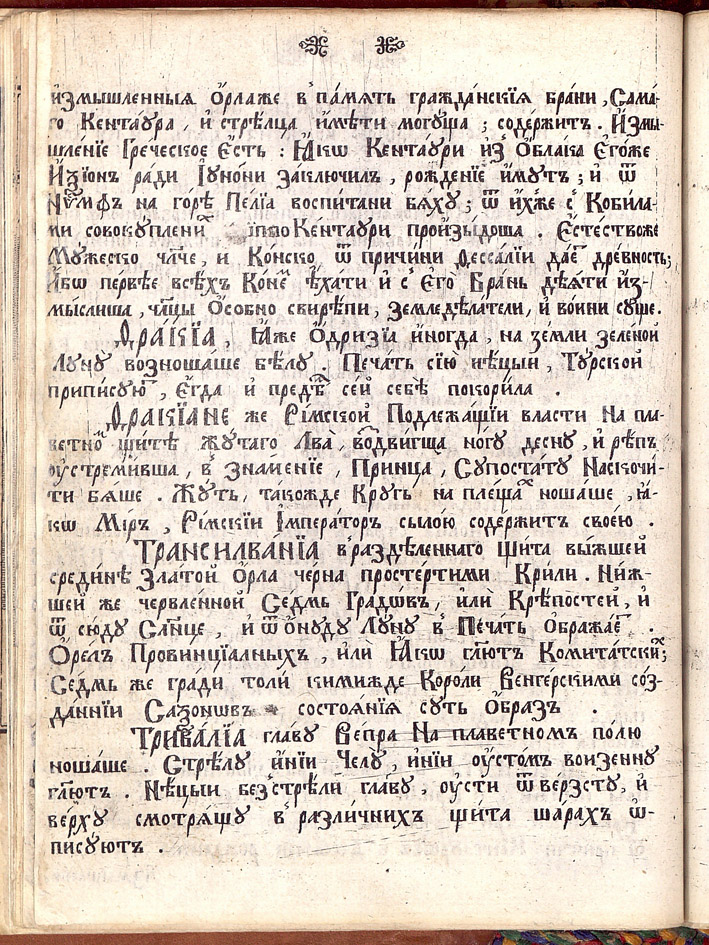 и҆змышленныѧ Ѻ҆рлаже в̾ па́мѧть гражда́нскїѧ бра́ни , Сама́-
го Кента́ѵра , и҆ стрѣ́лца и҆мѣ́ти могꙋща ; содержитъ . И҆змы-
шле́нїе Гре́ческое Є҆сть : Ꙗ҆́кѡ Кента́ѵри и҆з̾ Ѻ҆́блака Є҆го́же
И҆ѯі́онъ ра́ди І҆ꙋно́ни за́ключилъ , рожде́нїе и҆́мꙋтъ ; и҆ ѿ
Нѵ́мфъ на го́рѣ Пелі́а воспи́тани бѧ́хꙋ ; ѿ и҆́хже с̾ Коби́ла-
ми совокꙋплени Кента́ѵри прои҆зы́доша . Є҆сте́ствоже
Мꙋ́жеско чл҃че , и҆ Ко́нско ѿ причи́ни Ѳессалі́и дае҆́т дре́вность ;
А҆́бѡ пе́рвѣе всѣ́хъ Ко́не ѣ҆́хати и҆ с̾ Є҆го̀ Бра́нь дѣ́ѧти и҆з-
мы́слиша , ча́щы Ѻ҆со́бно свирѣ́пи , земледѣ́латели , и҆ во́ини сꙋ́ще .
Ѳра́кїа , Ꙗ҆́же Ѻ҆дризі́а и҆ногда , на зе́мли зеле́ной
Лꙋнꙋ возноша́ше бѣ́лꙋ . Печа́ть сїю̀ нѣ́цыи , Тꙋ́рской
припи́сꙋют , Є҆гда и҆ пред̾ се́й себѣ̀ покори́ла .
Ѳракїане же Ри́мской Подлежа́щїи вла́сти на пла-
ветно́ щи́тѣ жꙋ́таго Лва̀ , водви́гща но́гꙋ деснꙋ , и҆ рѣ́пъ
ᲂу҆стреми́вша , в̾ зна́менїе , При́нца , Сꙋпоста́тꙋ Наскочи́-
ти бѧ́ше . Жꙋ́тъ , тако́жде Крꙋ́гъ на пле́щах ноша́ше , ꙗ҆́-
кѡ Мі́ръ , Ри́мскїи І҆мпера́торъ сы́лою содержи́тъ свое́ю .
Трансилва́нїа в̾раздѣле́ннаго щи́та вы́жшей
среди́нѣ Злато́й Ѻ҆рла че́рна просте́ртими Кри́ли . Ни́ж-
шей же черве́нной Се́дмь Гра́дѡвъ , и҆лѝ Крѣ́постей , и҆
ѿ сю́дꙋ Сл҃нце , и҆ ѿ ѻ҆нꙋ́дꙋ Лꙋ́нꙋ в̾ Печа́ть Ѻ҆бража́ет .
Ѻ҆ре́лъ Провинцїа́лныхъ , и҆лѝ Ꙗ҆́кѡ гл҃ютъ Комита́тских ;
Се́дмь же гра́ди толи́ кими́жде Коро́ли Венге́рскими со́з-
да́ннїи Саѯо́нѡвъ состоѧ́нїѧ сꙋть Ѻ҆́бразъ .
Трива́лїа главꙋ̀ Ве́пра На пла́ветномъ по́лю
ноша́ше . Стрѣ́лꙋ и҆́нїи Челꙋ , и҆́нїи ᲂу҆сто́мъ воизе́ннꙋ
гл҃ютъ . Нѣ́цыи без̾стрѣ́ли гла́вꙋ , ᲂу҆́сти ѿве́рзстꙋ , и҆
ве́рхꙋ смотрѧ́щꙋ в̾ разли́чнихъ щи́та ша́рахъ ѡ҆-
писꙋ́ютъ .